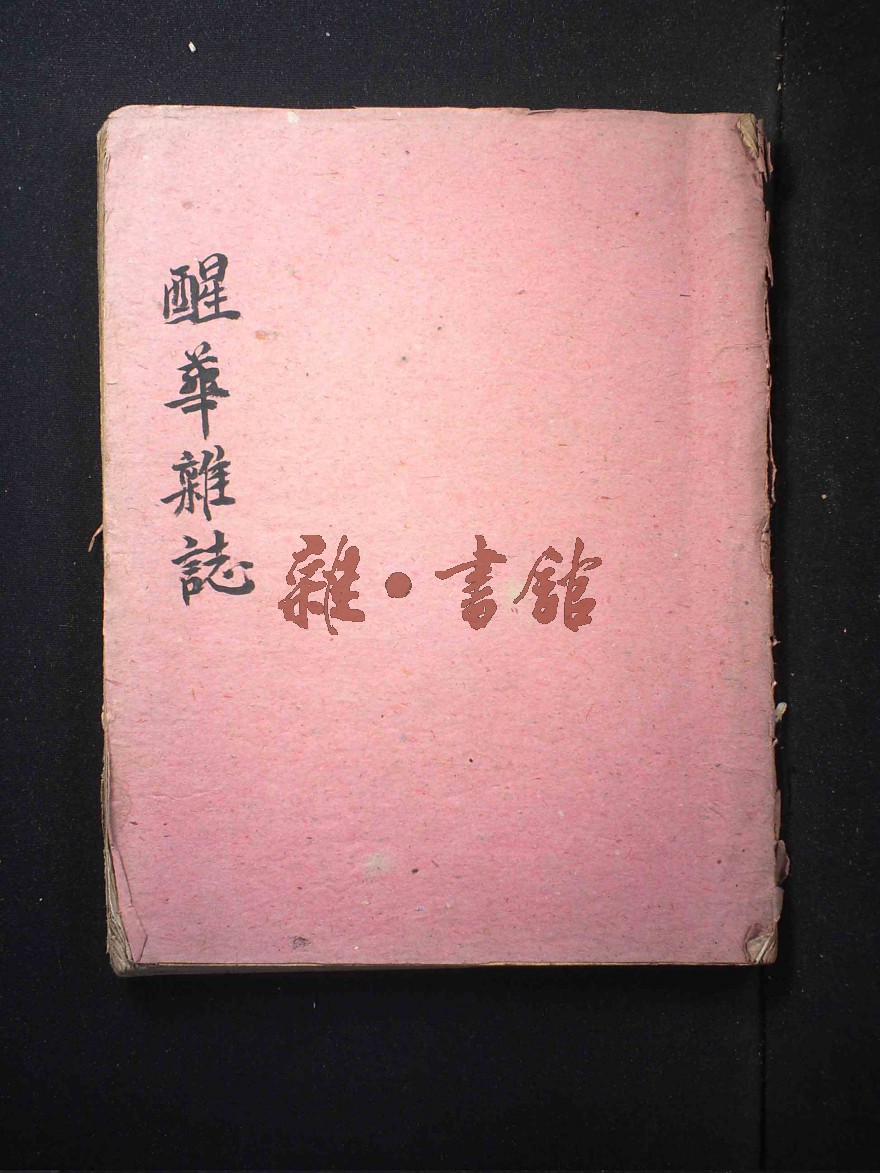 醒華雜誌
雜·書館